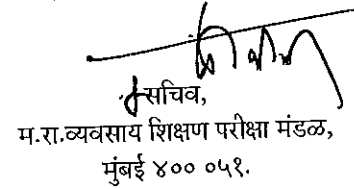 सचिव,
म.रा.व्यवसाय शिक्षण परीक्षा मंडळ,
मुंबई ४०० ०५१.